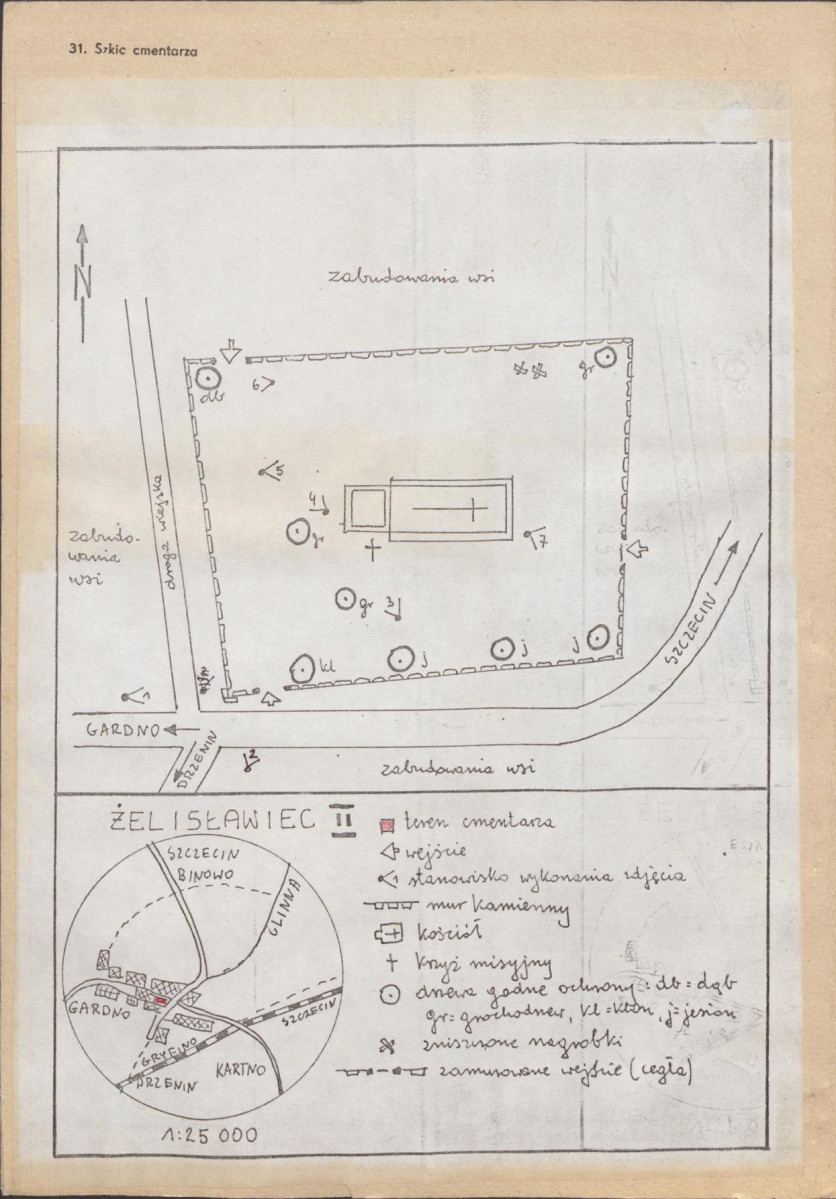 31. Szkic cmentarza
N
zabudowania wsi
db
6
gr
5
4
gr
7
droga wiejska
zabudo-
wania
wsi
gr
3
kl
j
j
j
1
SZCZECIN
GARDNO
DRZENIN
2
zabudowania wsi
ŻELISŁAWIEC II
teren cmentarza
wejście
1 stanowisko wykonania zdjęcia
mur kamienny
kościół
krzyż misyjny
drzewa godne ochrony: db = dąb
gr = grochodrzew, kl = klon, j = jesion
zniszczone nagrobki
zamurowane wejście (cegła)
SZCZECIN
BINOWO
GLINNA
GARDNO
SZCZECIN
GRYFINO
DRZENIN
KARTNO
1:25 000